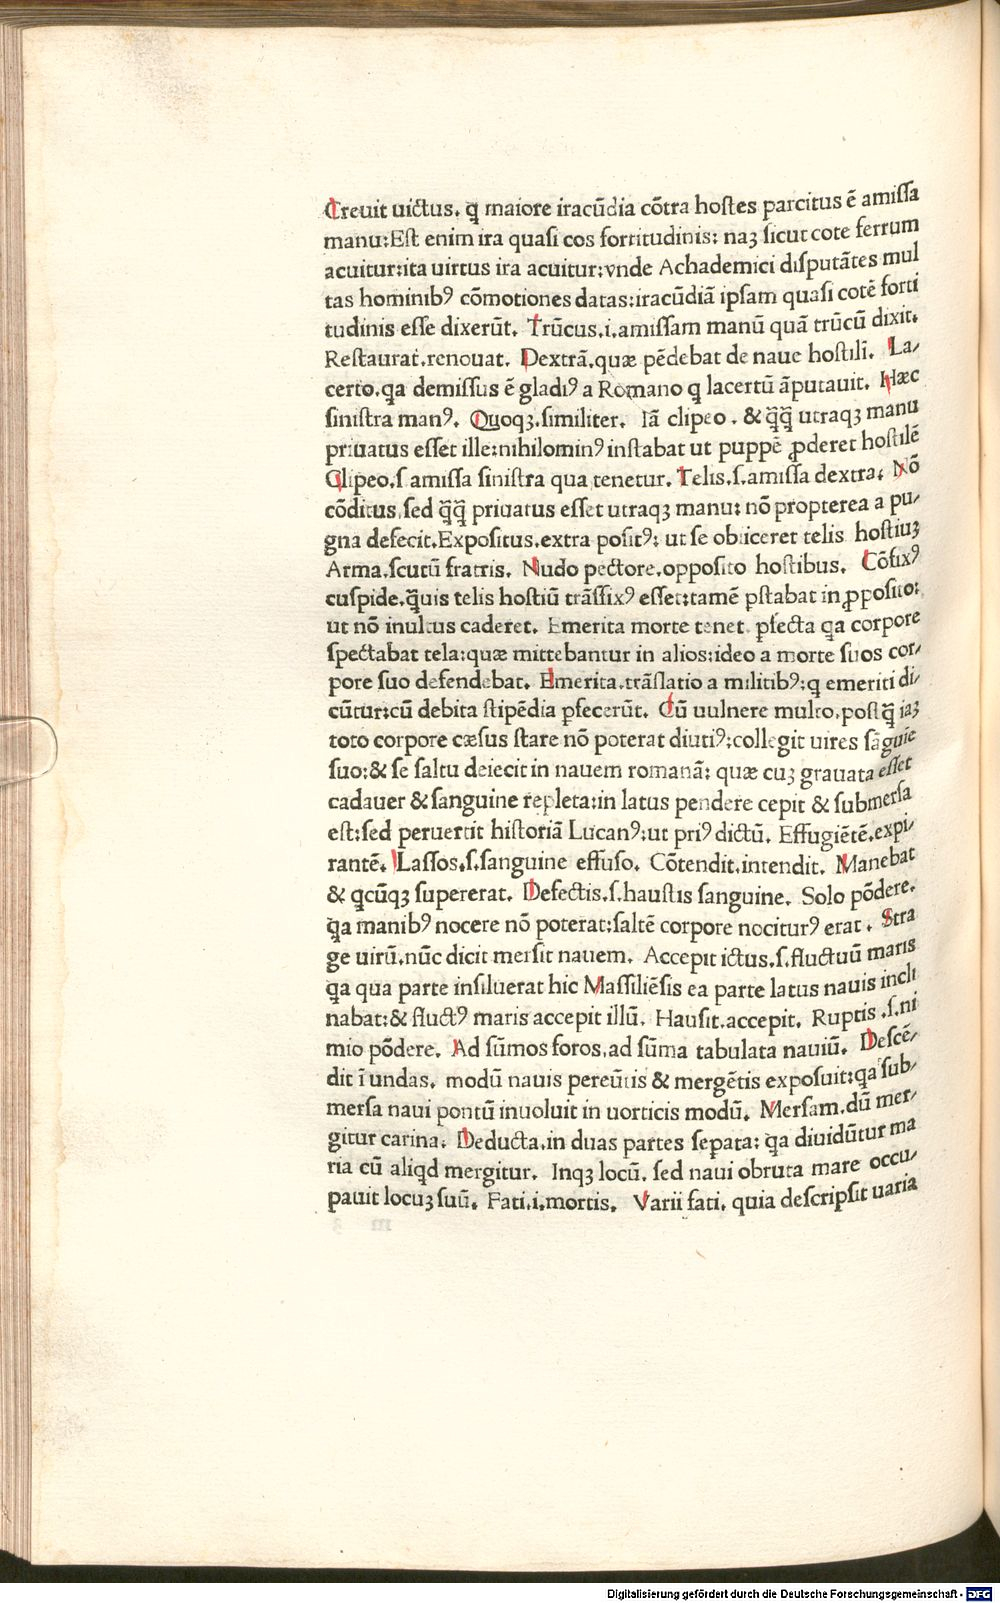 Creuit uictus. ꝗ maiore iracūdia cōtra hostes parcitus ē amissa
manu:Est enim ira quasi cos fortitudinis: naꝫ sicut cote ferrum
acuitur:ita uirtus ira acuitur:vnde Achademici disputātes mul
tas hominibꝰ cōmotiones datas:iracūdiā ipsam quasi cotē forti
tudinis esse dixerūt. Trūcus.i.amissam manū quā trūcū dixit.
Restaurat.renouat. Dextrā.quæ pēdebat de naue hostili. La⸗
certo.ꝗa demissus ē gladiꝰ a Romano ꝗ lacertū āputauit. Hæc
sinistra manꝰ. Quoqꝫ.similiter. Iā clipeo. & ꝗ̄ꝗ̄ utraqꝫ manu
priuatus esset ille:nihilominꝰ instabat ut puppē ꝓderet hostilē
Clipeo.s amissa sinistra qua tenetur. Telis.s.amissa dextra. Nō
cōditus.sed ꝗ̄ꝗ̄ priuatus esset utraqꝫ manu: nō propterea a pu⸗
gna defecit.Expositus.extra positꝰ: ut se obiiceret telis hostiuꝫ
Arma.scutū fratris. Nudo pectore.opposito hostibus. Cōfixꝰ
cuspide.ꝗ̄uis telis hostiū trāssixꝰ esset:tamē pstabat in ꝓposito:
ut nō inultus caderet. Emerita morte tenet. ꝑfecta ꝗa corpore
spectabat tela:quæ mittebantur in alios:ideo a morte suos cor⸗
pore suo defendebat. Emerita.trāslatio a militibꝰ:ꝗ emeriti di⸗
cūtur:cū debita stipēdia ꝑfecerūt. Cū uulnere multo.postꝗ̄ iaꝫ
toto corpore cæsus stare nō poterat diutiꝰ:collegit uires sāguie
suo:& se saltu deiecit in nauem romanā: quæ cuꝫ grauata esset
cadauer & sanguine repleta:in latus pendere cepit & submersa
est:sed peruertit historiā Lucanꝰ:ut priꝰ dictū. Effugiētē.expi⸗
rantē. Lassos.s.sanguine effuso. Cōtendit.intendit. Manebat
& ꝗcūqꝫ supererat. Defectis.s.haustis sanguine. Solo pōdere.
ꝗa manibꝰ nocere nō poterat:saltē corpore nociturꝰ erat. Stra
ge uirū.nūc dicit mersit nauem. Accepit ictus.s.fluctuū maris
ꝗa qua parte insiluerat hic Massiliēsis ea parte latus nauis incli
nabat:& fluctꝰ maris accepit illū. Hausit.accepit. Ruptis .s.ni
mio pōdere. Ad sūmos foros.ad sūma tabulata nauiū. Descē⸗
dit ī undas. modū nauis pereūtis & mergētis exposuit:ꝗa sub⸗
mersa naui pontū inuoluit in uorticis modū. Mersam.dū mer⸗
gitur carina. Deducta.in duas partes sepata: ꝗa diuidūtur ma
ria cū aliqd mergitur. Inqꝫ locū. sed naui obruta mare occu⸗
pauit locuꝫ suū. Fati.i.mortis. Varii fati. quia descripsit uaria
Digitalisierung gefördert durch die Deutsche Forschungsgemeinschaft - DFG